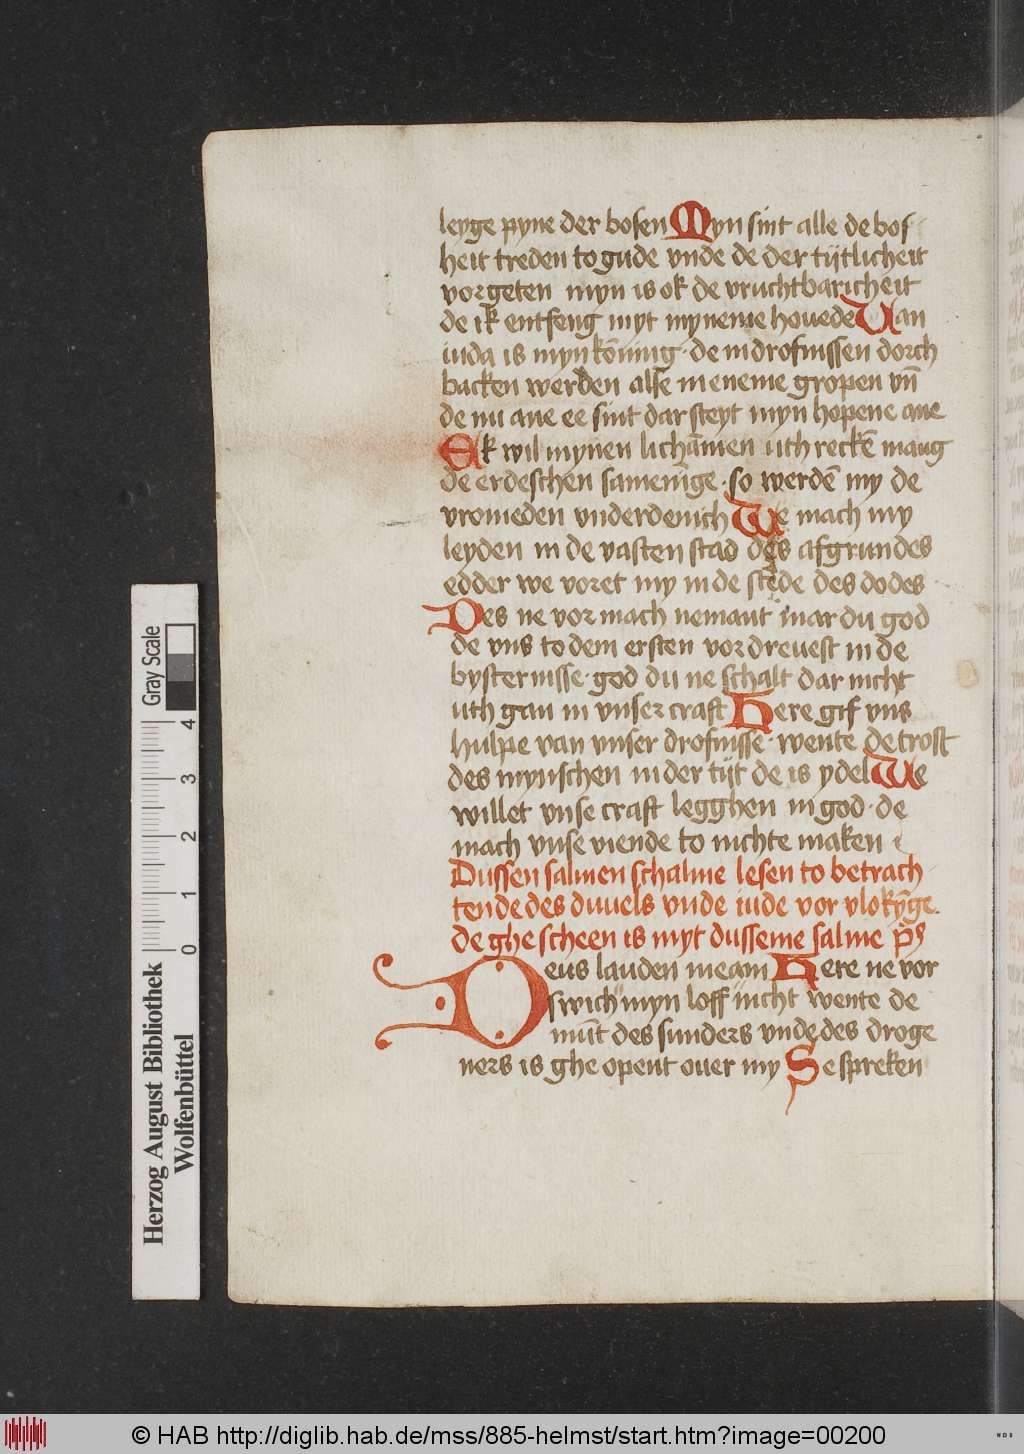 leyge pyne der bosen Myn sint alle de bos
heit treden to gude vnde de der tijtlicheit
vorgeten myn is ok de vruchtbaricheit
de ik entfeng myt myneme houede Van
iuda is myn kōning · de in drofnissen dorch
backen werden alse in eneme gropen vn̄
de nu ane ee sint dar steyt myn hopene ane
Ek wil mynen lichāmen uth reckē
de erdeschen samenige · so werdē my de
vromeden vnderdenich We mach my
leyden in de vasten stad des afgrundes
edder we voret my in de stede des dodes
Des ne vor mach nemant mar du god
de vns to dem ersten vordreuest in de
bysternisse · god du ne schalt dar nicht
uth gan in vnser craft Here gif vns
hulpe van vnser drofnisse · wente de trost
des mynschen in der tijt de is ydel We
willet vnse craft legghen in god · de
mach vnse viende to nichte maken
Dussen salmen schalme lesen to betrach
tende des duuels vnde iude vor vlokȳge.
de ghe scheen is myt dusseme salme p̄s
Deus lauden meam Here ne vor
swich myn loff nicht wente de
mūt des sunders vnde des droge
ners is ghe opent ouer my Se spreken
Gray Scale
4 3 2 1 0
Herzog August Bibliothek
Wolfenbüttel
© HAB http://diglib.hab.de/mss/885-helmst/start.htm?image=00200